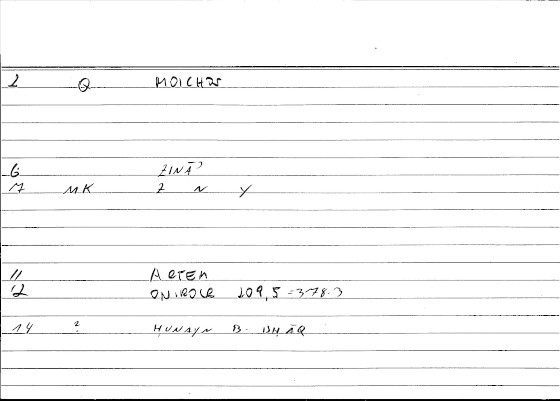 2 Q MOICHOS
6 ZINĀʾ
7 MK Z N Y
11 ARTEM
12 ONIROCR 209,5 = 378.3
14 ? HUNAYN B. ISHĀQ